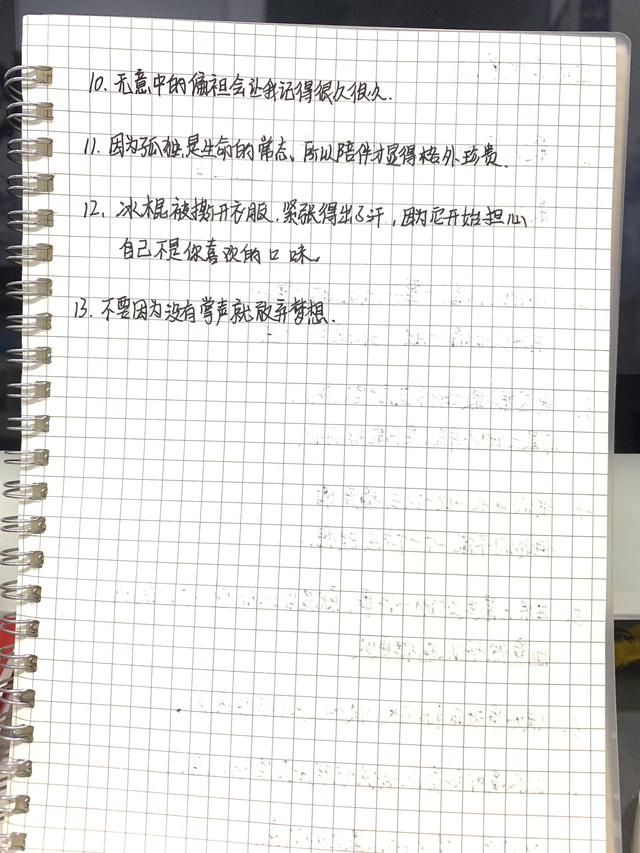 10. 无意中的偏袒会让我记得很久很久.
11. 因为孤独是生命的常态、所以陪伴才显得格外珍贵.
12. 冰棍被撕开衣服.紧张得出了汗,因为它开始担心
自己不是你喜欢的口味。
13. 不要因为没有掌声就放弃梦想.